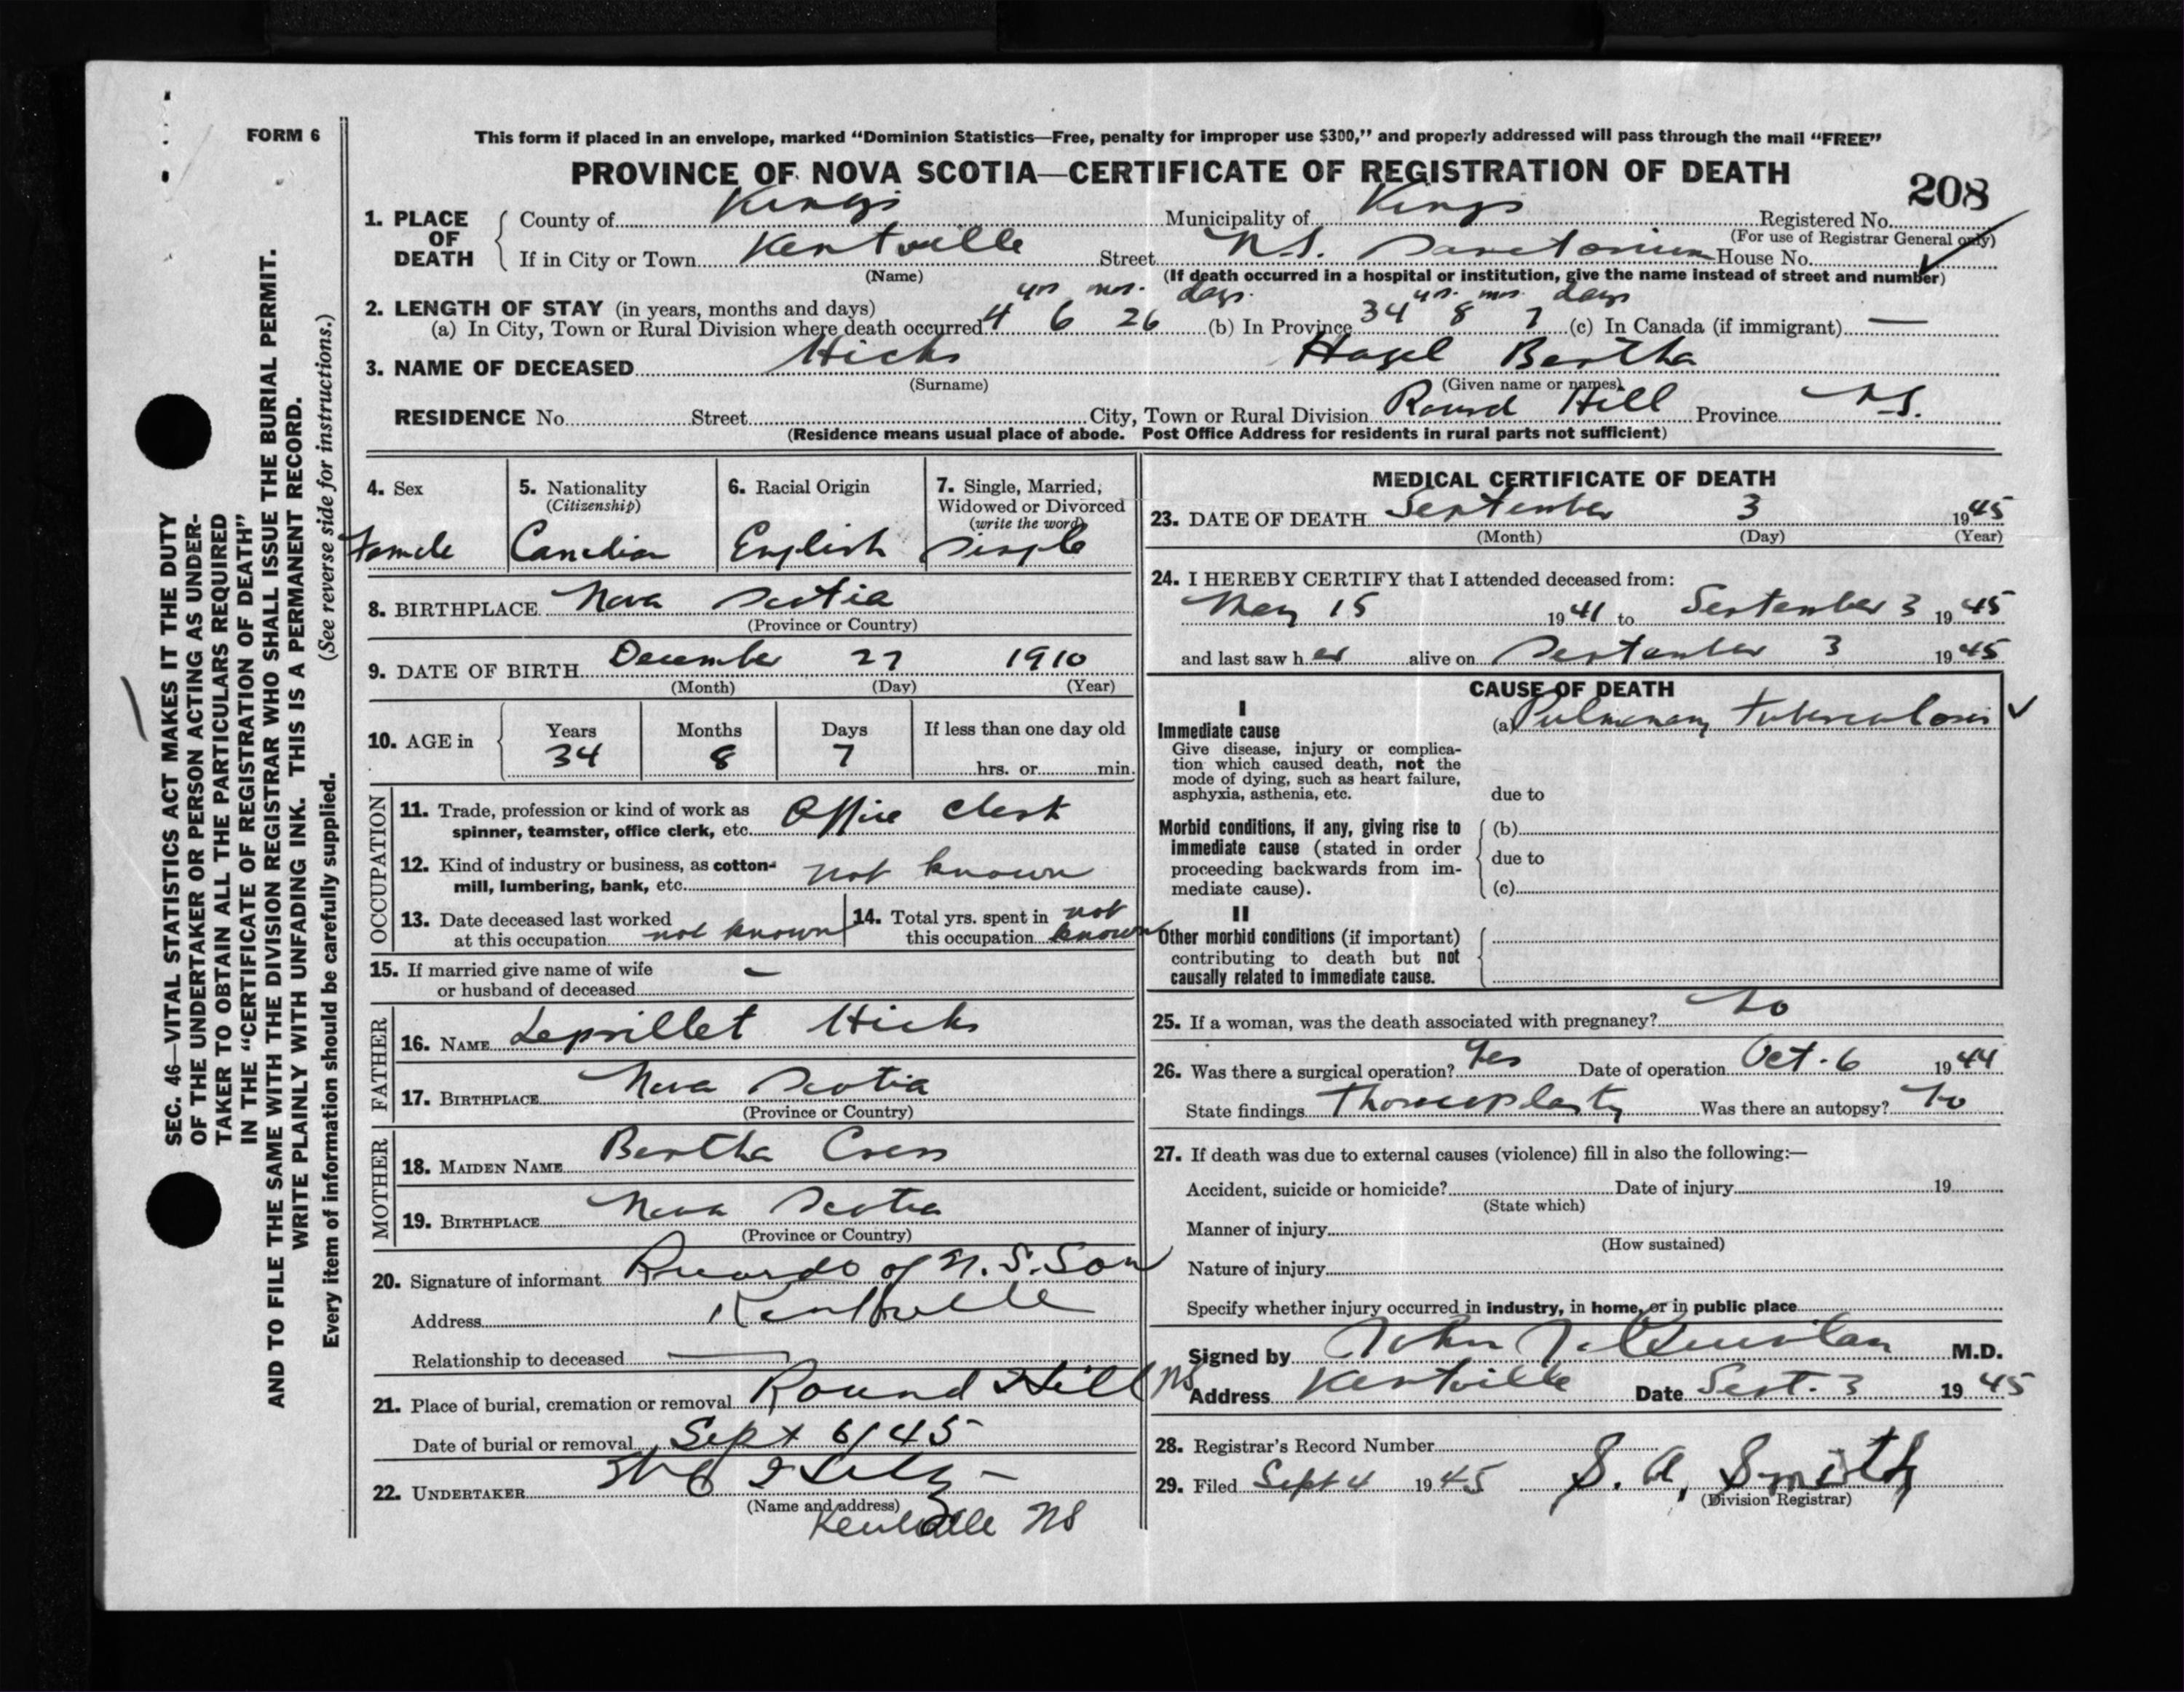 FORM 6
This form if placed in an envelope, marked “Dominion Statistics—Free, penalty for improper use $300,” and properly addressed will pass through the mail “FREE”
PROVINCE OF NOVA SCOTIA—CERTIFICATE OF REGISTRATION OF DEATH
208
1. PLACE OF DEATH
County of Kings Municipality of Kings Registered No.
(For use of Registrar General only)
If in City or Town Kentville Street N.S. Sanatorium House No.
(Name) (If death occurred in a hospital or institution, give the name instead of street and number)
2. LENGTH OF STAY (in years, months and days)
yrs mos. days. yrs. mos. days
(a) In City, Town or Rural Division where death occurred 4 6 26 (b) In Province 34 8 7 (c) In Canada (if immigrant) —
3. NAME OF DECEASED Hicks Hazel Bertha
(Surname) (Given name or names)
RESIDENCE No. Street City, Town or Rural Division Round Hill Province N.S.
(Residence means usual place of abode. Post Office Address for residents in rural parts not sufficient)
4. Sex
Female
5. Nationality
(Citizenship)
Canadian
6. Racial Origin
English
7. Single, Married,
Widowed or Divorced
(write the word)
Single
8. BIRTHPLACE Nova Scotia
(Province or Country)
9. DATE OF BIRTH December 27 1910
(Month) (Day) (Year)
10. AGE in
Years Months Days If less than one day old
34 8 7
hrs. or min.
OCCUPATION
11. Trade, profession or kind of work as
spinner, teamster, office clerk, etc. Office Clerk
12. Kind of industry or business, as cotton-
mill, lumbering, bank, etc. not known
13. Date deceased last worked
at this occupation not known
14. Total yrs. spent in not
this occupation known
15. If married give name of wife
or husband of deceased —
FATHER
16. NAME Hicks
17. BIRTHPLACE Nova Scotia
(Province or Country)
MOTHER
18. MAIDEN NAME Bertha
19. BIRTHPLACE Nova Scotia
(Province or Country)
20. Signature of informant Records of N.S. San
Address Kentville
Relationship to deceased —
21. Place of burial, cremation or removal Round Hill NS
Date of burial or removal Sept 6/45
22. UNDERTAKER
(Name and address)
Kentville NS
MEDICAL CERTIFICATE OF DEATH
23. DATE OF DEATH September 3 1945
(Month) (Day) (Year)
24. I HEREBY CERTIFY that I attended deceased from:
May 15 1941 to September 3 1945
and last saw her alive on September 3 1945
CAUSE OF DEATH
I
Immediate cause
Give disease, injury or complica-
tion which caused death, not the
mode of dying, such as heart failure,
asphyxia, asthenia, etc.
(a) Pulmonary Tuberculosis
due to
Morbid conditions, if any, giving rise to
immediate cause (stated in order
proceeding backwards from im-
mediate cause).
(b)
due to
(c)
II
Other morbid conditions (if important)
contributing to death but not
causally related to immediate cause.
25. If a woman, was the death associated with pregnancy? No
26. Was there a surgical operation? Yes Date of operation Oct. 6 1944
State findings Thoracoplasty Was there an autopsy? No
27. If death was due to external causes (violence) fill in also the following:—
Accident, suicide or homicide? Date of injury 19
(State which)
Manner of injury
(How sustained)
Nature of injury
Specify whether injury occurred in industry, in home, or in public place
Signed by John J. Quinlan M.D.
Address Kentville Date Sept. 3 1945
28. Registrar's Record Number
29. Filed Sept 4 1945 S. A. Smith
(Division Registrar)
SEC. 46—VITAL STATISTICS ACT MAKES IT THE DUTY
OF THE UNDERTAKER OR PERSON ACTING AS UNDER-
TAKER TO OBTAIN ALL THE PARTICULARS REQUIRED
IN THE “CERTIFICATE OF REGISTRATION OF DEATH”
AND TO FILE THE SAME WITH THE DIVISION REGISTRAR WHO SHALL ISSUE THE BURIAL PERMIT.
WRITE PLAINLY WITH UNFADING INK. THIS IS A PERMANENT RECORD.
Every item of information should be carefully supplied. (See reverse side for instructions.)